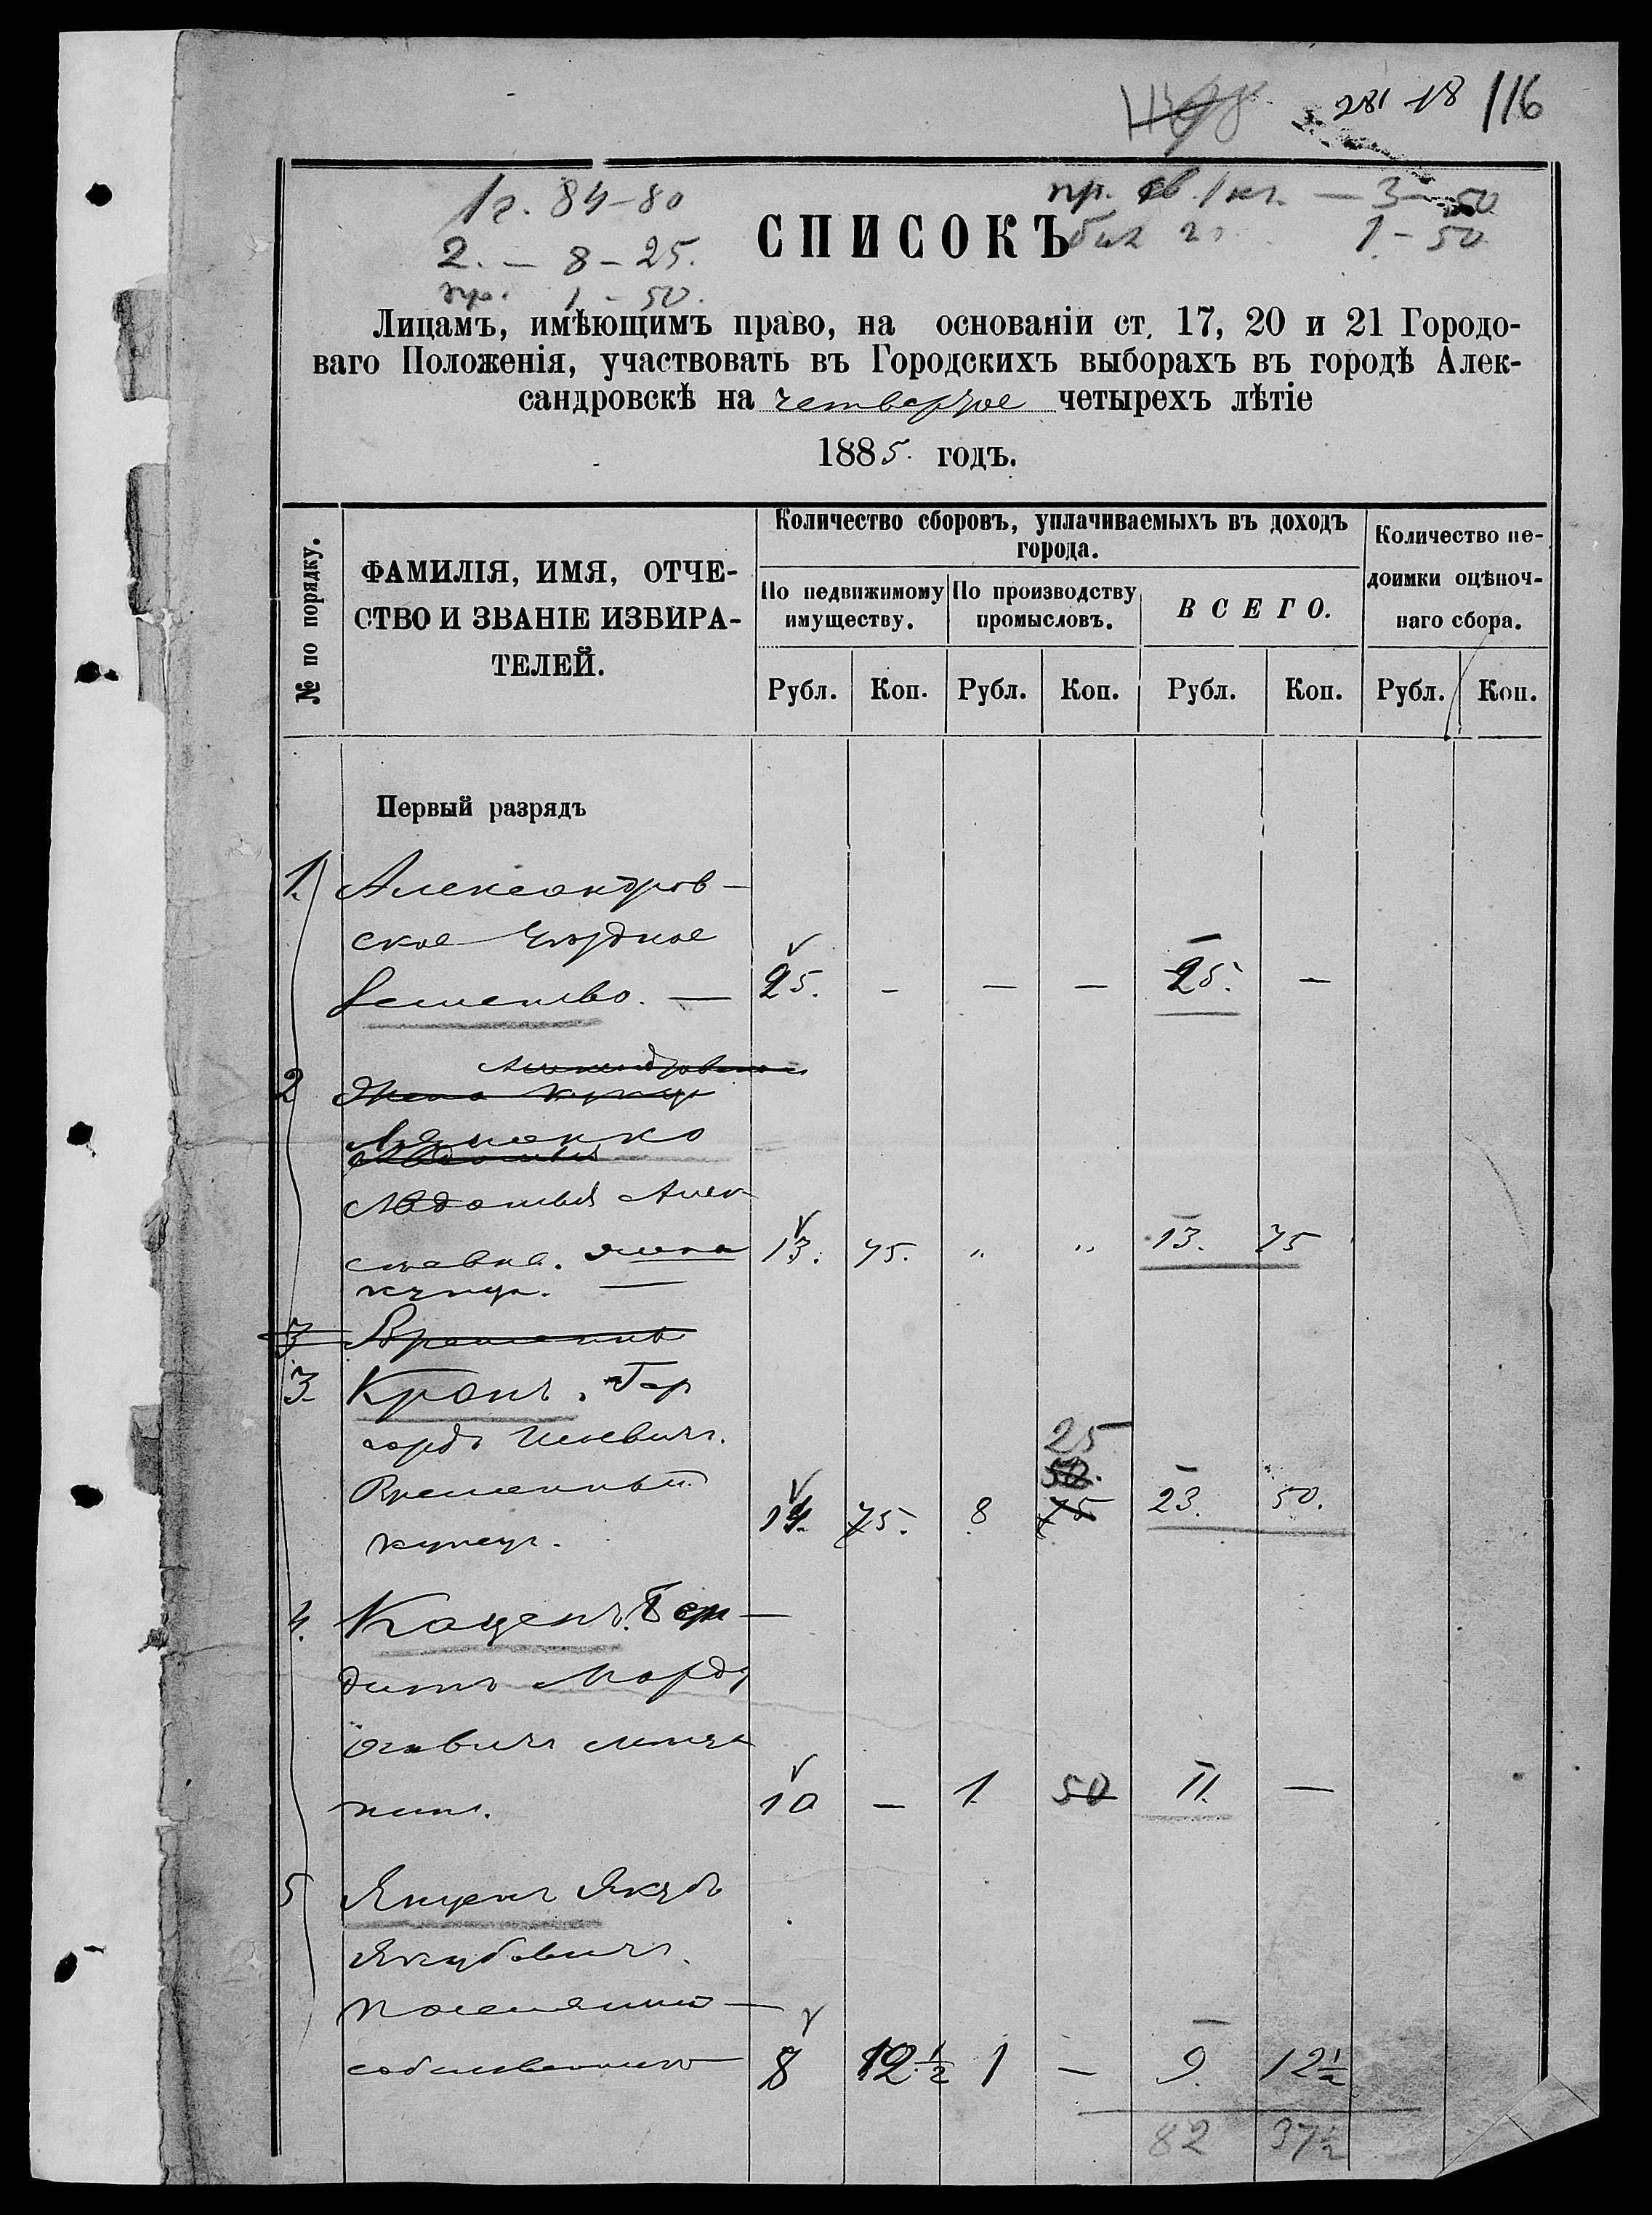 281 18 116
1г. 84-80
2. - 8-25.
пр. 1-50.
пр. св. 1 кл. - 3-50
бил 1-50
СПИСОКЪ
Лицамъ, имѣющимъ право, на основаніи ст. 17, 20 и 21 Городо-
ваго Положенія, участвовать въ Городскихъ выборахъ въ городѣ Алек-
сандровскѣ на четвертое четырехъ лѣтіе
1885. годъ.
№ по порядку.
ФАМИЛІЯ, ИМЯ, ОТЧЕ-
СТВО И ЗВАНІЕ ИЗБИРА-
ТЕЛЕЙ.
Количество сборовъ, уплачиваемыхъ въ доходъ
города.
По недвижимому
имуществу.
По производству
промысловъ.
ВСЕГО.
Количество не-
доимки оцѣноч-
наго сбора.
Рубл. Коп. Рубл. Коп. Рубл. Коп. Рубл. Коп.
Первый разрядъ
1. Александров-
ское Уѣздное
Земство. — 25. - — — 25. —
2 Жена купца
Авдотья Алек-
сѣевна. жена 13. 75. " " 13. 75
купца. —
3
3. Кронъ. Гер
гардъ Исаевичъ. 25
Временный 50.
купецъ. 14. 75. 8 75 23. 50.
4. Каценъ.
Морд
овичъ мѣща
нинъ. 10 — 1. 50 11. —
5 Янценъ Якубъ
Якубовичъ.
поселянинъ —
собственникъ 8 12½ 1 — 9. 12½
82 37½